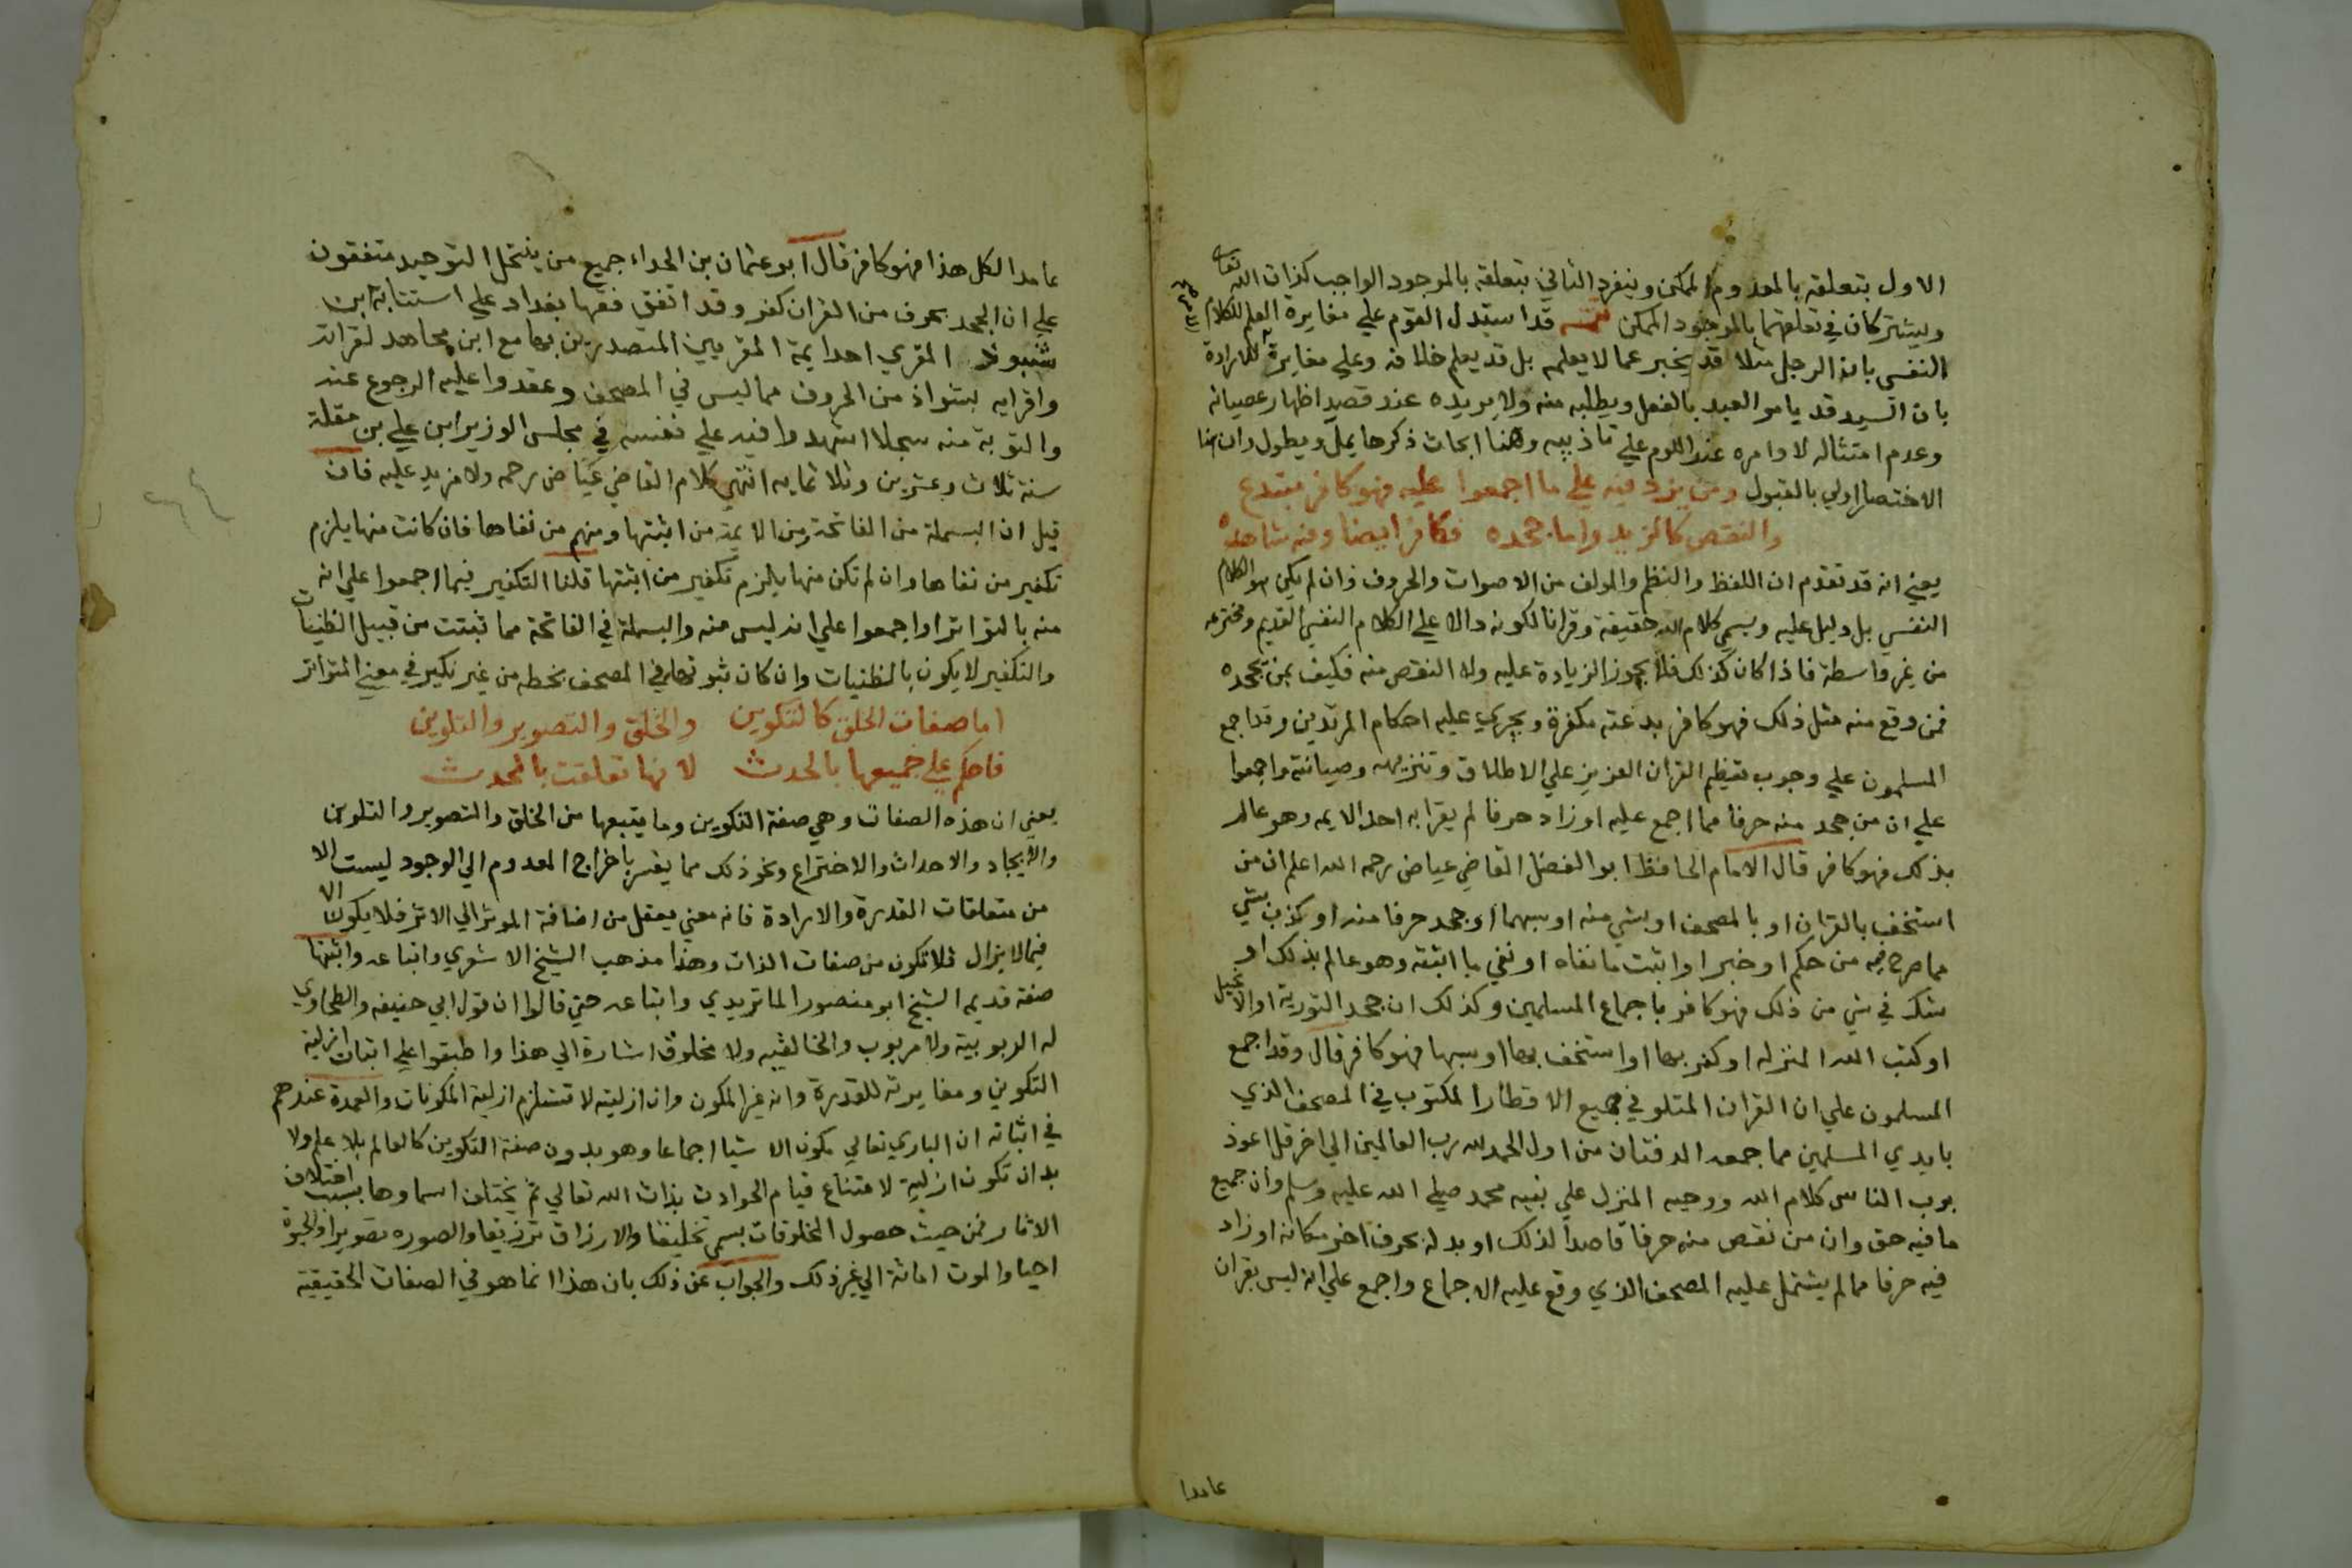 الاول بتعلقه بالمعدوم الممكن وينفرد الثاني بتعلقه بالموجود الواجب كذات الله تعالى
ويشتركان في تعلقهما بالموجود الممكن تتمه قد استدل القوم علي مغايرة العلم للكلام
النفسي بان الرجل مثلا قد يخبر عما لا يعلمه بل قد يعلم خلافه وعلي مغايرته للارادة
بان السيد قد يامر العبد بالفعل ويطلبه منه ولا يريده عند قصد اظهار عصيانه
وعدم امتثاله لاوامره عند اللوم علي تاذيبه وهنا ابحاث ذكرها يمل ويطول وان هنا
الاختصار اولي بالقبول ومن يزد فيه علي ما اجمعوا عليه فهو كافر مبتدع
والنقص كالمزيد واما جحده فكافر ايضا ومنه شاهده
يعني انه قد تقدم ان اللفظ والنظم والمولف من الاصوات والحروف وان لم يكن هو الكلام
النفسي بل دليل عليه ويسمي كلام الله حقيقة وقرانا لكونه دالا علي الكلام النفسي القديم ومخترعه
من غير واسطة فاذا كان كذلك فلا يجوز الزيادة عليه ولا النقص منه فكيف بمن يجحده
فمن وقع منه مثل ذلك فهو كافر بدعته مكفرة ويجري عليه احكام المرتدين وقد اجمع
المسلمون علي وجوب تعظيم القران العزيز علي الاطلاق وتنزيهه وصيانته واجمعوا
علي ان من جحد منه حرفا مما اجمع عليه او زاد حرفا لم يقرا به احد الايمه وهو عالم
بذلك فهو كافر قال الامام الحافظ ابو الفضل القاضي عياض رحمه الله اعلم ان من
استخف بالقران او بالمصحف او بشي منه او سبهما او جحد حرفا منه او كذب بشي
مما صرح فيه من حكم او خبر او اثبت ما نفاه او نفي ما اثبته وهو عالم بذلك او
شك في شي من ذلك فهو كافر باجماع المسلمين وكذلك ان جحد التورية او الانجيل
او كتب الله المنزله او كفر بها او استخف بها او سبها فهو كافر قال وقد اجمع
المسلمون علي ان القران المتلو في جميع الاقطار المكتوب في المصحف الذي
بايدي المسلمين مما جمعه الدفتان من اول الحمد لله رب العالمين الي اخر قل اعوذ
برب الناس كلام الله ووحيه المنزل علي نبيه محمد صلي الله عليه وسلم وان جميع
ما فيه حق وان من نقص منه حرفا قاصدا لذلك او بدله بحرف اخر مكانه او زاد
فيه حرفا مما لم يشتمل عليه المصحف الذي وقع عليه الاجماع واجمع علي انه ليس بقران
عامدا
عامدا لكل هذا فهو كافر قال ابو عثمان بن الحداء جميع من ينتحل التوحيد متفقون
علي ان الجحد بحرف من القران كفر وقد اتفق فقها بغداد علي استتابة ابن
شنبوذ المقري احد ايمة المقريين المتصدرين بها مع ابن مجاهد لقراته
واقرايه بشواذ من الحروف مما ليس في المصحف وعقدوا عليه الرجوع عنه
والتوبة منه سجلا اشهدوا فيه علي نفسه في مجلس الوزير ابن علي بن مقلة
سنة ثلاث وعشرين وثلاثمايه انتهي كلام القاضي عياض رحمه ولا مزيد عليه فان
قيل ان البسملة من الفاتحة ومن الايمة من اثبتها ومنهم من نفاها فان كانت منها يلزم
تكفير من نفاها وان لم تكن منها يلزم تكفير من اثبتها قلنا التكفير فيما اجمعوا علي انه
منه بالتواتر او اجمعوا علي انه ليس منه والبسملة في الفاتحة مما ثبتت من قبيل الظنيات
والتكفير لا يكون بالظنيات وان كان ثبوتها في المصحف بخطه من غير نكير في معني المتواتر
اما صفات الخلق كالتكوين والخلق والتصوير والتلوين
فاحكم علي جميعها بالحدث لانها تعلقت بالمحدث
يعني ان هذه الصفات وهي صفة التكوين وما يتبعها من الخلق والتصوير والتلوين
والايجاد والاحداث والاختراع ونحو ذلك مما يفسر باخراج المعدوم الي الوجود ليست الا
من متعلقات القدرة والارادة فانه معني يعقل من اضافة الموثر الي الاثر فلا يكون الا
فيما لا يزال فلا تكون من صفات الذات وهذا مذهب الشيخ الاشعري واتباعه واثبتها
صفة قديمه الشيخ ابو منصور الماتريدي واتباعه حتي قالوا ان قول ابي حنيفه والطحاوي
له الربوبية ولا مربوب والخالقيه ولا مخلوق اشارة الي هذا واطبقوا علي اثبات ازلية
التكوين ومغايرته للقدرة وانه غير المكون وان ازليته لا تستلزم ازلية المكونات والعمدة عندهم
في اثباته ان الباري تعالي مكون الاشيا اجماعا وهو بدون صفة التكوين كالعالم بلا علم ولا
بد ان تكون ازلية لامتناع قيام الحوادث بذات الله تعالي ثم يختلف اسماوها بسبب اختلاف
الاثار فمن حيث حصول المخلوقات يسمي تخليقا والارزاق ترزيقا والصوره تصويرا والحيوة
احيا والموت اماتة الي غير ذلك والجواب عن ذلك بان هذا انما هو في الصفات الحقيقية